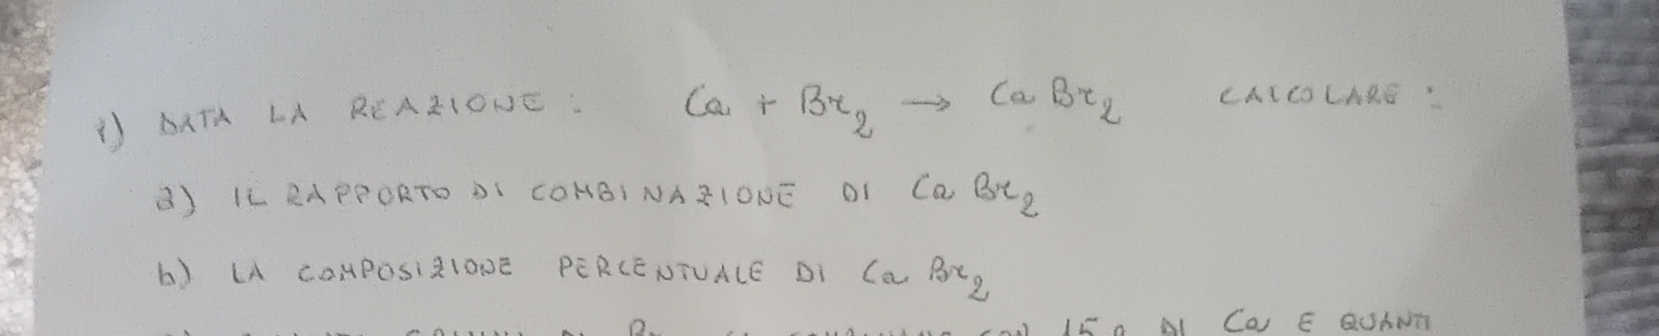 1) DATA LA REAZIONE : Ca + Br₂ → Ca Br₂ CALCOLARE :
a) IL RAPPORTO DI COMBINAZIONE DI Ca Br₂
b) LA COMPOSIZIONE PERCENTUALE DI Ca Br₂
DI Br CON 15 g DI Ca E QUANTI